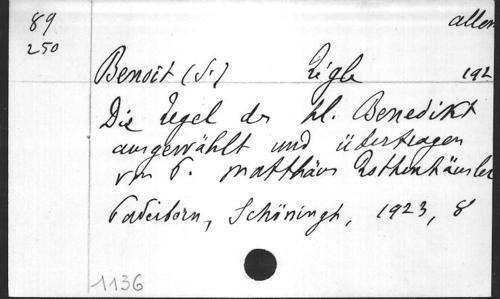 89
250
allem
Benoit (S.) Règle 192
Die Regel des hl. Benedikt
ausgewählt und übertragen
von P. Matthäus Rothenhäusler
Paderborn, Schöningh, 1923, 8
1136